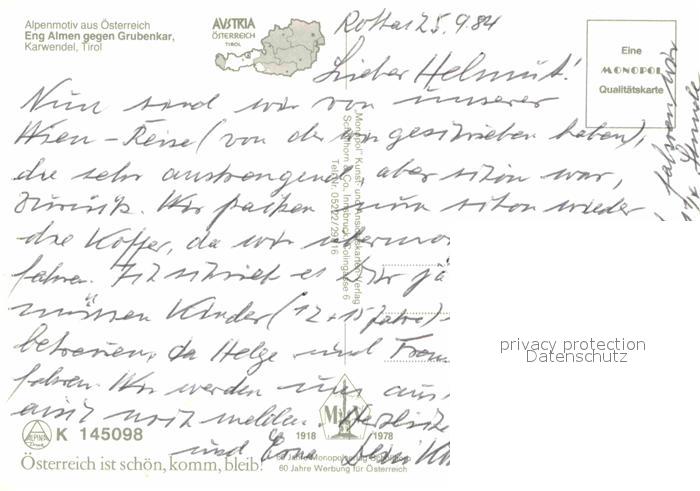 Alpenmotiv aus Österreich
Eng Almen gegen Grubenkar,
Karwendel, Tirol
AVSTRIA
ÖSTERREICH
TIROL
25.9.84
Eine
MONOPOL
Qualitätskarte
Lieber Helmut!
Nun sind wir von unserer
Wien-Reise (von der wir geschrieben haben),
die sehr anstrengend, aber schön war,
zurück. Wir packen nun schon wieder
die Koffer, da wir übermor
fahren. Ich schrieb es Dir ja
müssen Kinder (12+15 Jahre)
betreuen, da Helge und
fahren. Wir werden uns aus
auch noch melden. Herzlich
und Dein
fahren wir
"Monopol" Kunst- und Ansichtskarten-Verlag
& Co., Innsbruck,
Tel. Nr. 05222/
ALPINA
Druck
K 145098
1918
1978
Österreich ist schön, komm, bleib!
60 Jahre Monopolverlag
60 Jahre Werbung für Österreich
privacy protection
Datenschutz